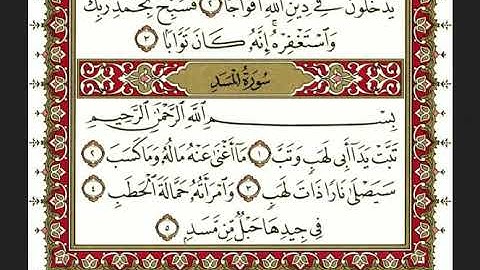 يَدْخُلُونَ فِي دِينِ ٱللَّهِ أَفْوَاجًا ٢ فَسَبِّحْ بِحَمْدِ رَبِّكَ
وَٱسْتَغْفِرْهُ إِنَّهُۥ كَانَ تَوَّابًا ٣
سُورَةُ المَسَد
بِسْمِ ٱللَّهِ ٱلرَّحْمَٰنِ ٱلرَّحِيمِ
تَبَّتْ يَدَآ أَبِي لَهَبٍ وَتَبَّ ١ مَآ أَغْنَىٰ عَنْهُ مَالُهُۥ وَمَا كَسَبَ ٢
سَيَصْلَىٰ نَارًا ذَاتَ لَهَبٍ ٣ وَٱمْرَأَتُهُۥ حَمَّالَةَ ٱلْحَطَبِ ٤
فِي جِيدِهَا حَبْلٌ مِّن مَّسَدٍ ٥